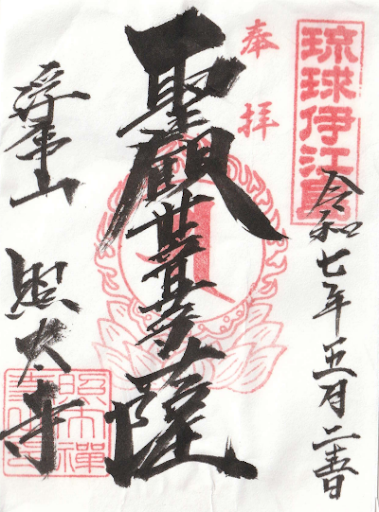 琉球伊江島
令和七年五月二十五日
奉拝
聖観世音菩薩
浮亀山
照太寺